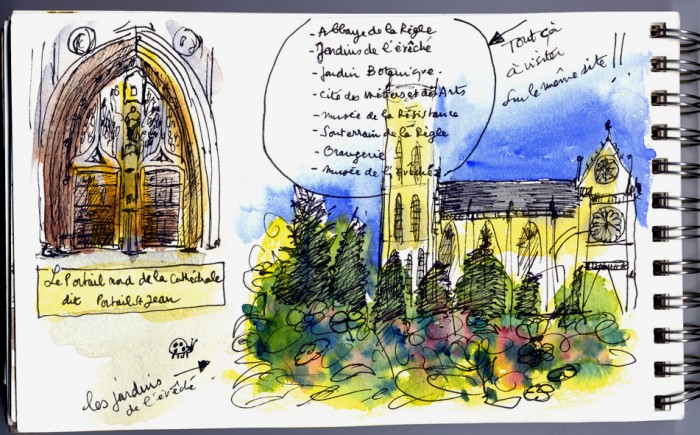 - Abbaye de la Règle
- Jardins de l'évêché
- Jardin Botanique.
- Cité des Métiers et des Arts
- musée de la Résistance
- Souterrain de la Règle
- Orangerie
- Musée de l'évêché
Tout ça
à visiter
sur le même site !!
Le Portail nord de la Cathédrale
dit Portail St Jean
les jardins
de l'évêché